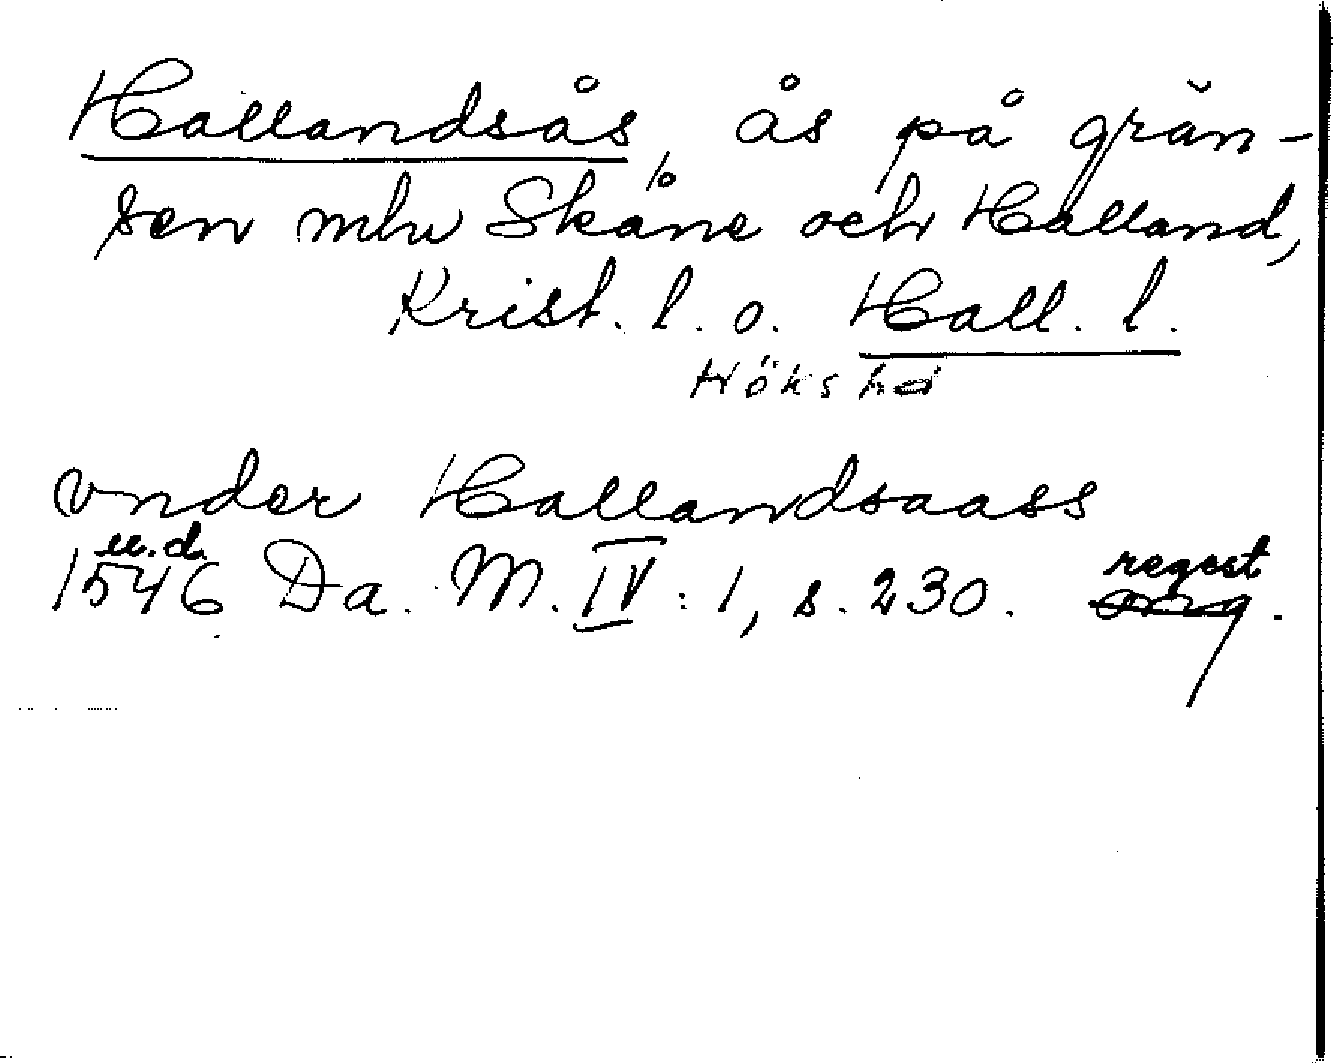 Hallandsås, ås på grän-
sen mln Skåne och Halland,
Krist. l. o. Hall. l.
Höks hd
vnder Hallandsaass
u.d.
1546 Da. M. IV:1, s. 230. regest.